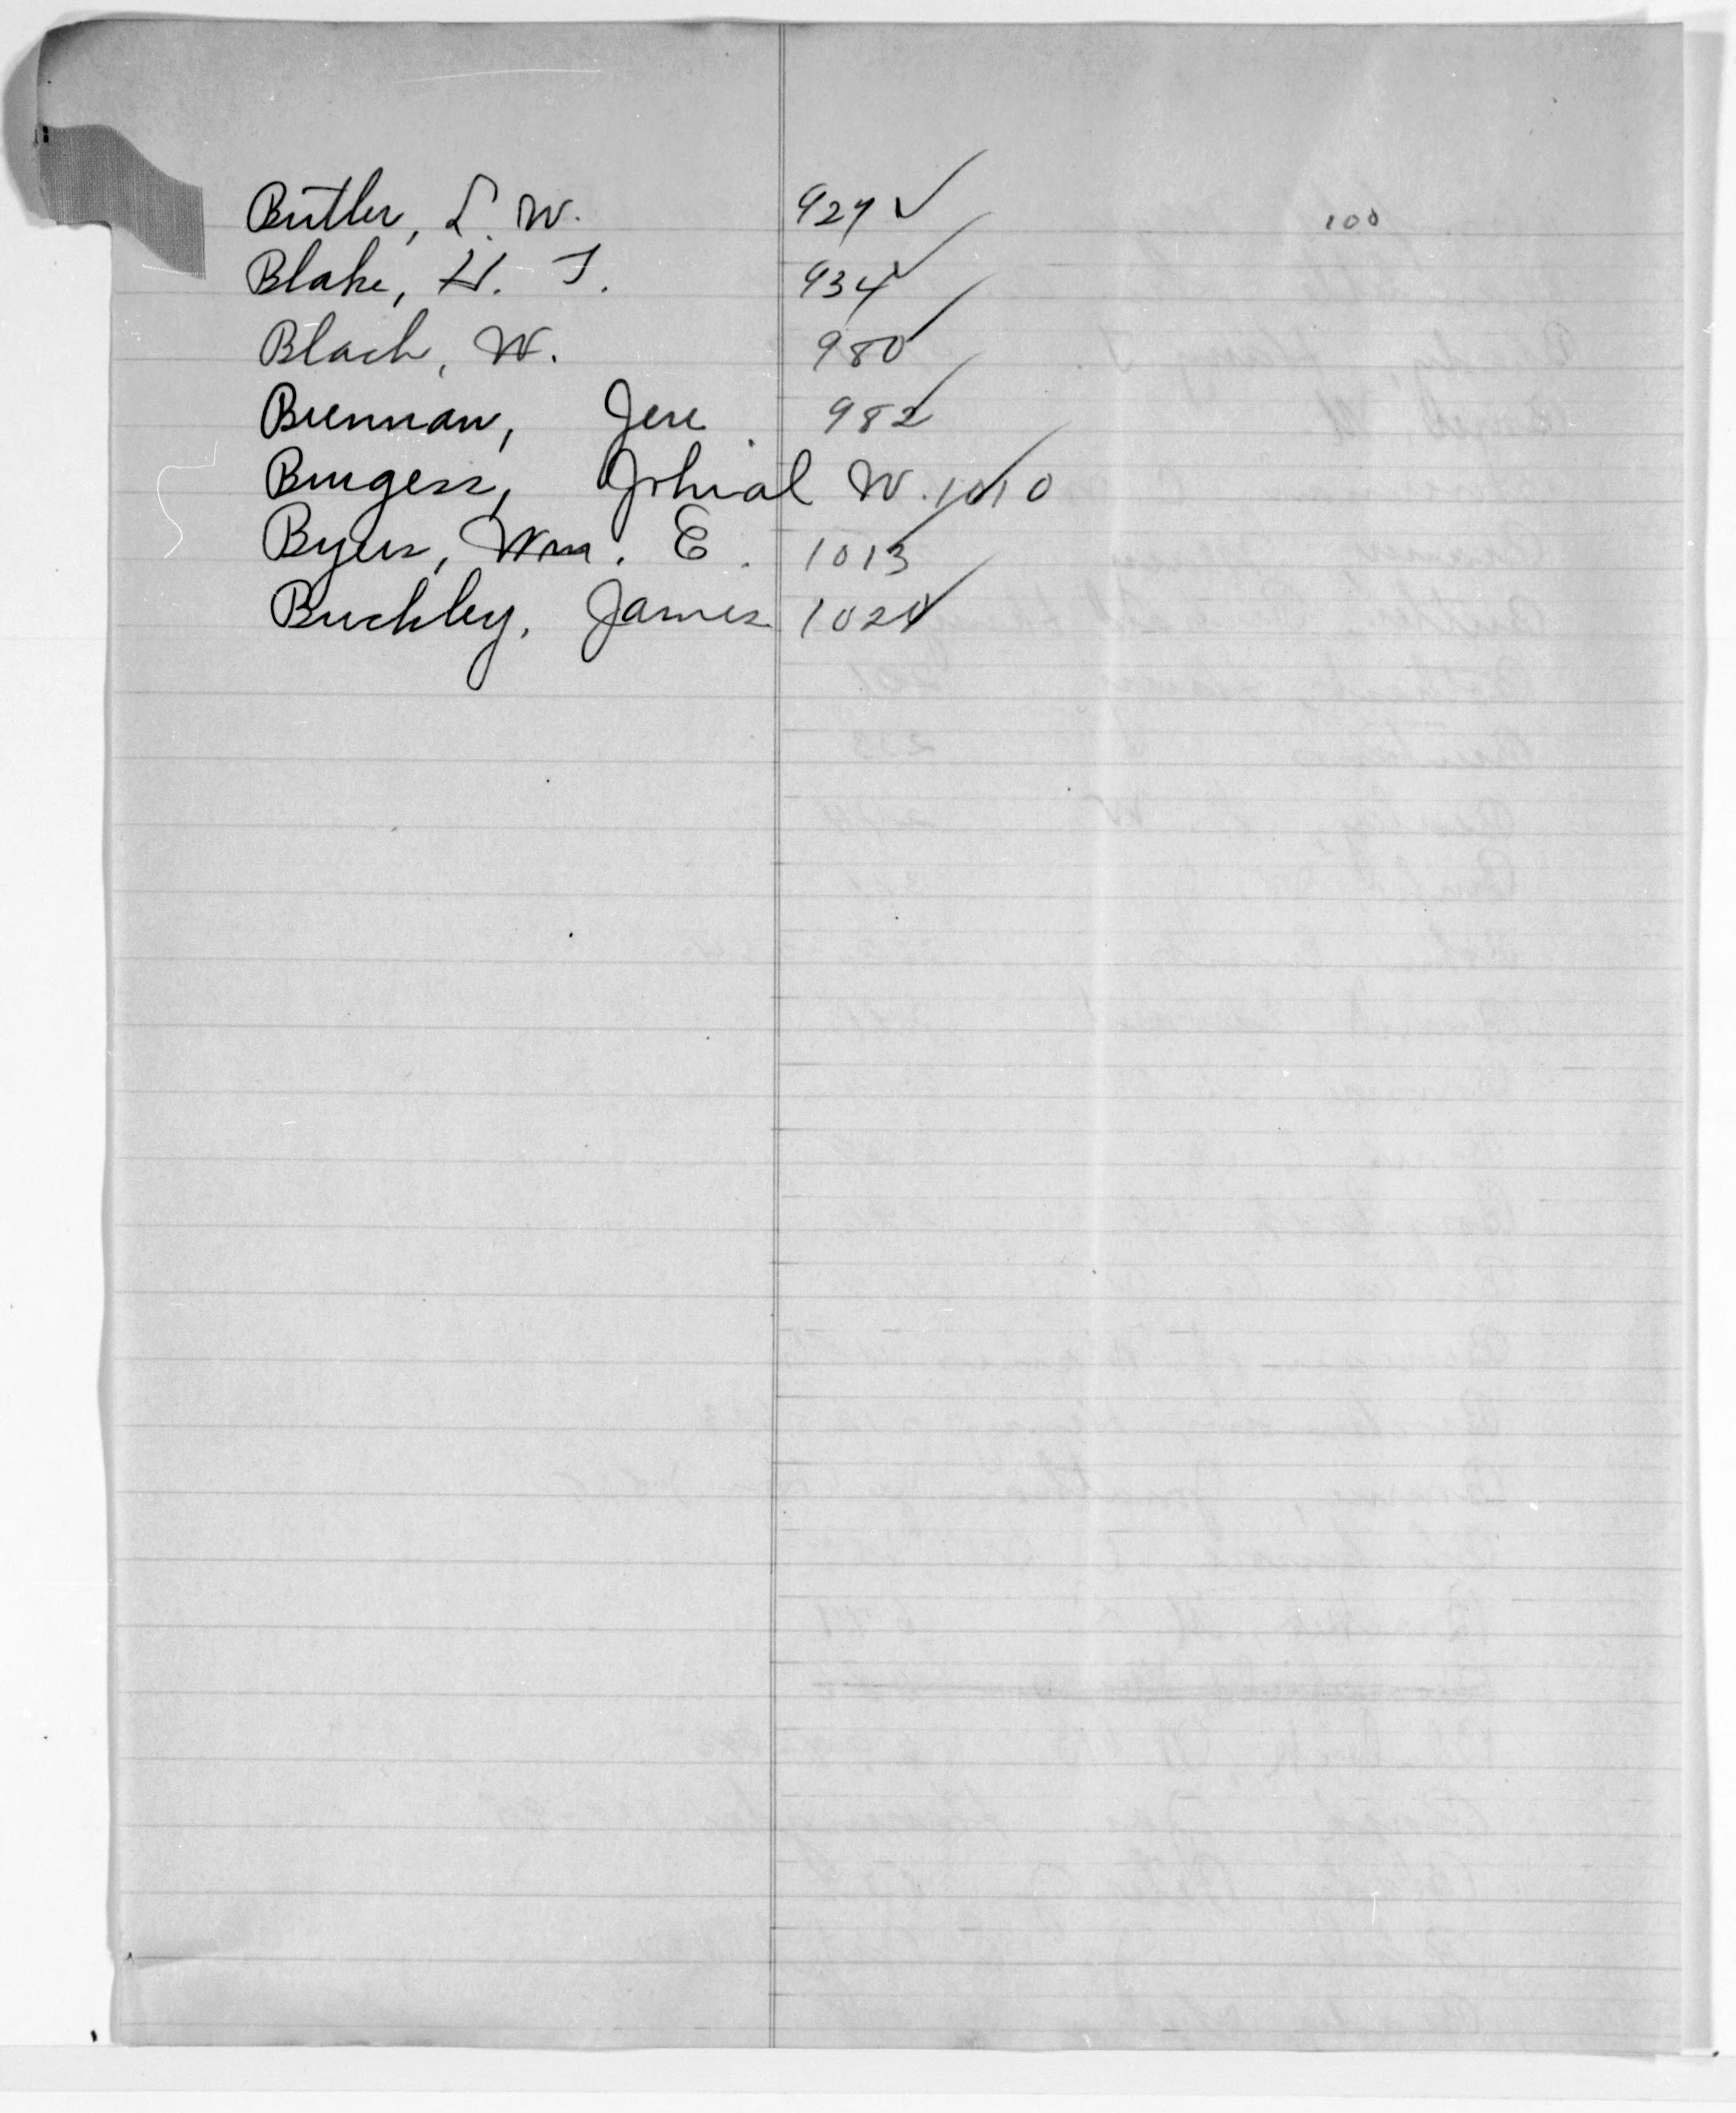 Butler, L. W. 927 ✓ 100
Blake, H. T. 934 ✓
Black, W. 980 ✓
Brennan, Jere 982 ✓
Burgess, W. 1010 ✓
Byers, Wm. E. 1013 ✓
Buckley, James 1024 ✓